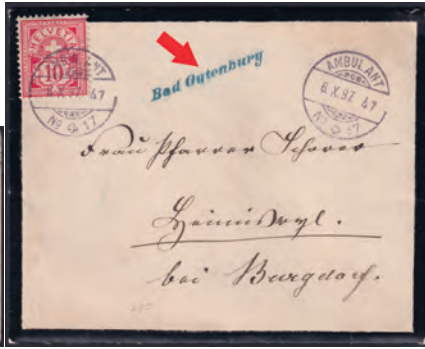 HELVETIA
10
AMBULANT
6.X.97 47
No 17
Bad Gutenburg
AMBULANT
6.X.97 47
No 17
Frau Pfarrer Schorer
Heimiswyl.
bei Burgdorf.